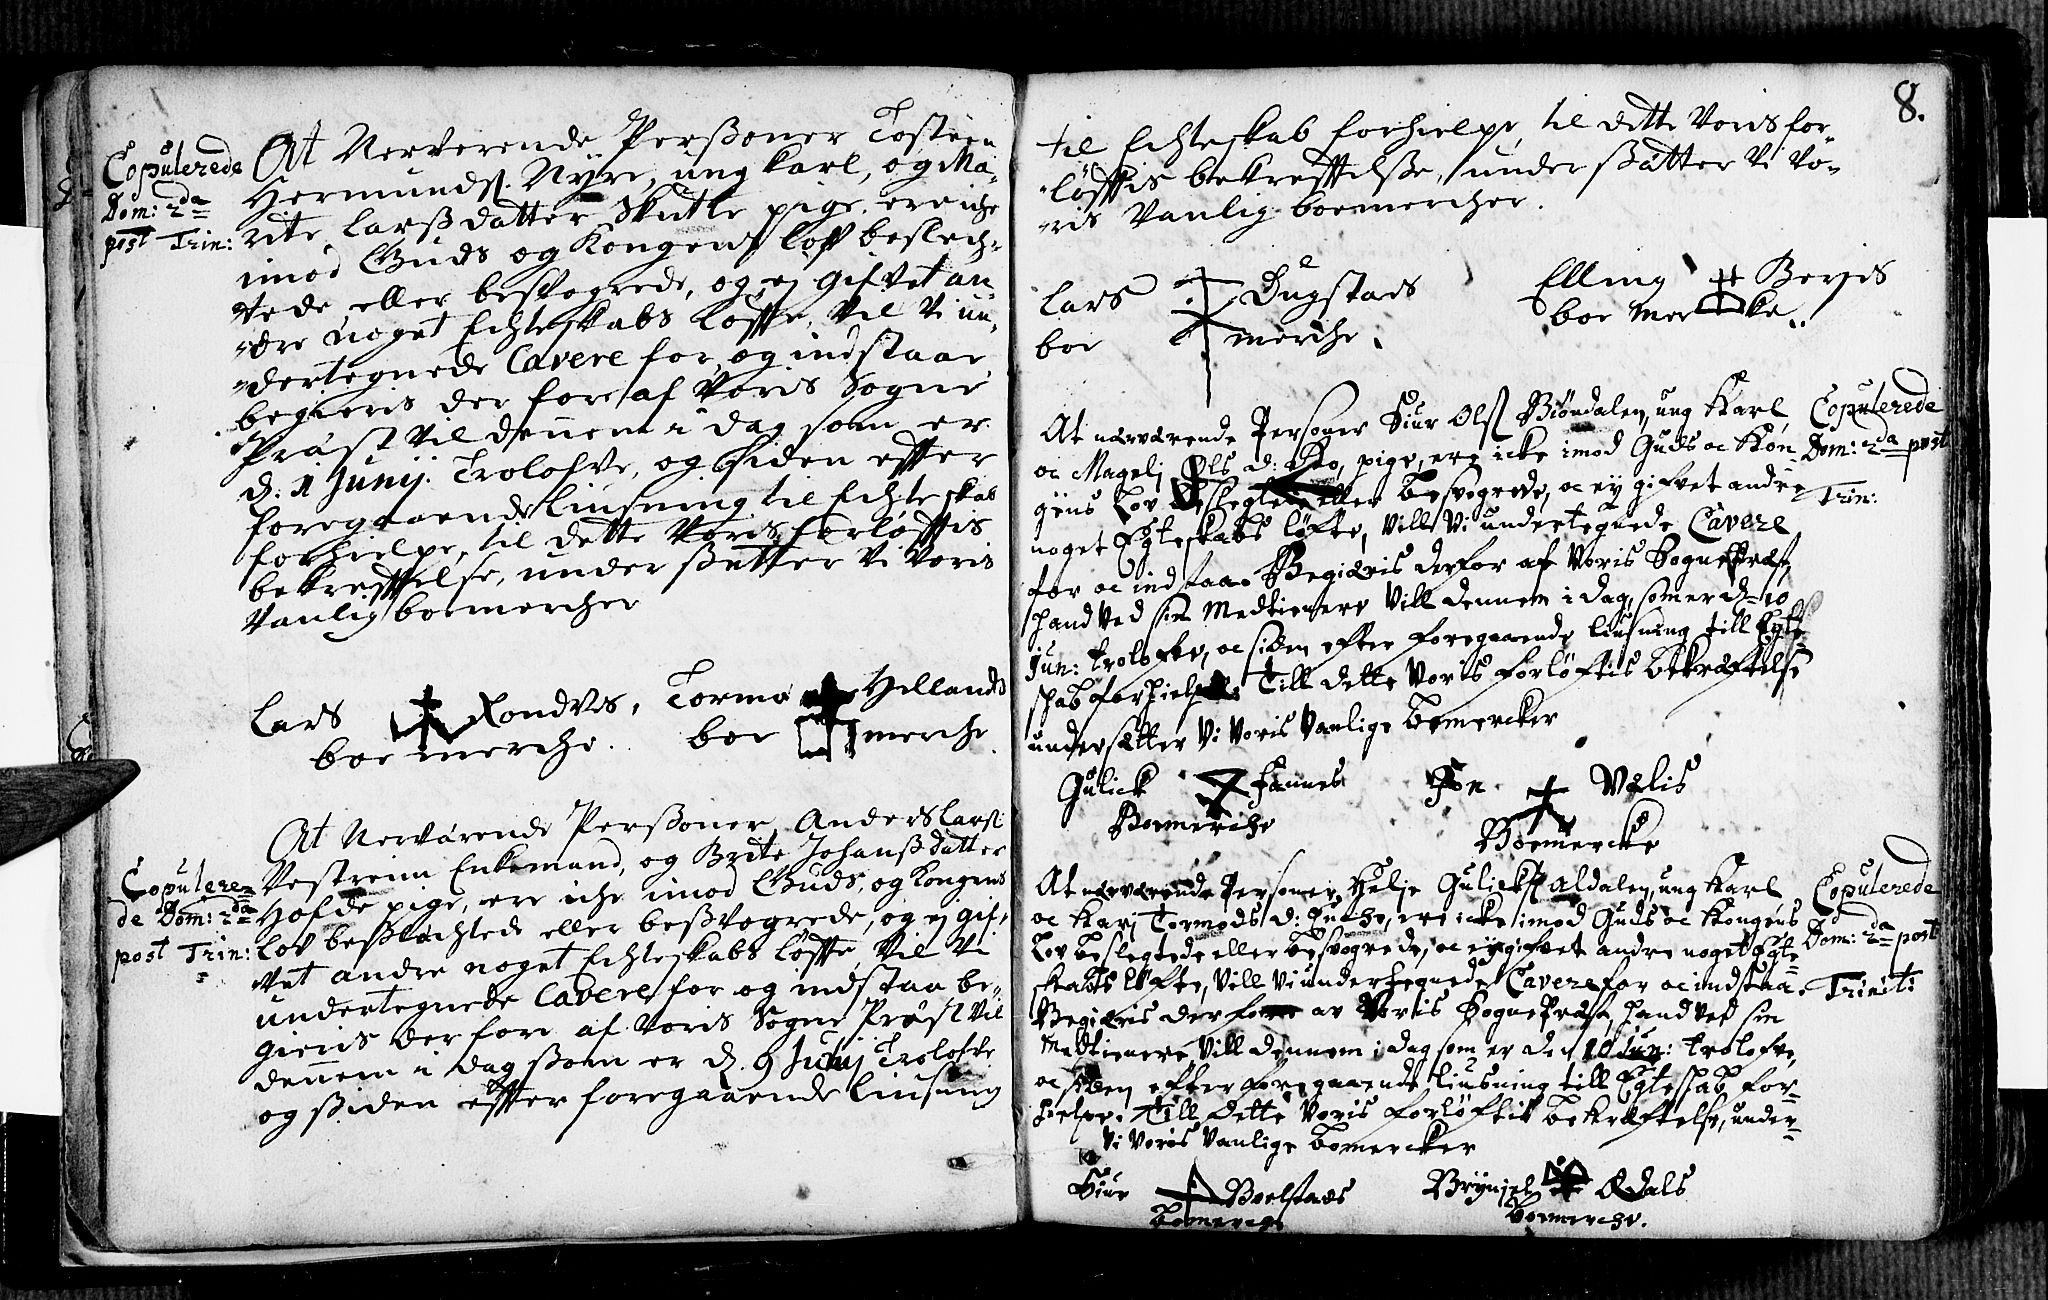 Copulerede
Dom: 2da
post Trin:
At Nerverende Perßoner Tosteen
Hermunds. Nÿre, ung karl, og Ma-
rite Larßdatter Skutle pige, ere iche
imod Guds og Kongens lov beslech-
tede eller besvogrede, og ej gifvet an
-dre noget Echteskabs Løffte, Vil Vi un-
-dertegnede Cavere for, og indstaae
begieris der fore af Voris Sogne
Præst Vil dennem i dag som er
d: 1 Junij. Trolofve, og siden effter
foregaaende Liusning til Echteskab
forhielpe, til dette Voris forløfftis
bekrefftelse, under ßetter Vi Voris
Vanlig boemercher
Lars Rondves, Tormo Hellands
boe merche. boe merche
Copulere-
de Dom: 2da
post Trin:
At Nerværende Perßoner Anders Larß:
Vestreim Enkemand, og Brite Johanßdatter
Hofde pige, ere iche imod Guds, og Kongens
Lov beßlæchtede eller beßvogrede, og ej gif-
vet andre noget Echteskabs Løffte, Vil Vi
undertegnede Cavere for og indstaa be-
gieris der fore af Voris Sogne Præst Vil
dennem i dag ßom er d. 9 Junij Trolofve
og ßiden effter foregaaende Liusning
8.
til Echteskab forhielpe, til dette Voris for-
-løfftis bekrefftelße, under ßætter Vi Vo-
-ris Vanlig boemercher.
Lars Dugstads Elling Berjes
boe merche. boe merke.
At nærværende Personer Siur Olss Biøndalen, ung Karl
oc Magelj Ols d: , pige, ere icke imod Guds oc Kon-
gens Lov beslegtede eller besvogrede, oc ej gifvet andre
noget Egteskabs løfte, Vill Vi undertegnede Cavere
for oc indstaa. Begiæris derfor af Voris Sognepræst,
hand Ved sin Medtienere Vill dennem i dag, som er d. 10
Jun: Trolofve, oc siden efter foregaaende liusning till Egte-
skab forhielpe. Till dette Voris Forløftis bekræftelse
undersætter Vi Voris Vanlige bomercker
Copulerede
Dom: 2da post
Trin:
Gulick Fannes Jon Vælis
Boemerche Boemercke
At nærværende Personer Helje Gulicks Aldalen, ung Karl
oc Kari Tormods d: , ere icke imod Guds oc Kongens
Lov beslegtede eller besvogrede, oc ej gifvet andre noget Egte-
skabs løfte, Vill Vi undertegnede Cavere for oc indstaa.
Begiæris derfore av Voris Sognepræst, hand Ved sin
Medtienere Vill dennem i dag som er den 10 Jun: trolofve,
oc siden efter foregaaende liusning till Egteskab for-
hielpe. Till dette Voris Forløftis bekræftelse, under-
Vi Voris Vanlige bomercker
Copulerede
Dom: 2da post
Trinit:
Siur Boelstads Brynjel Ædals
bomerche boemerche.